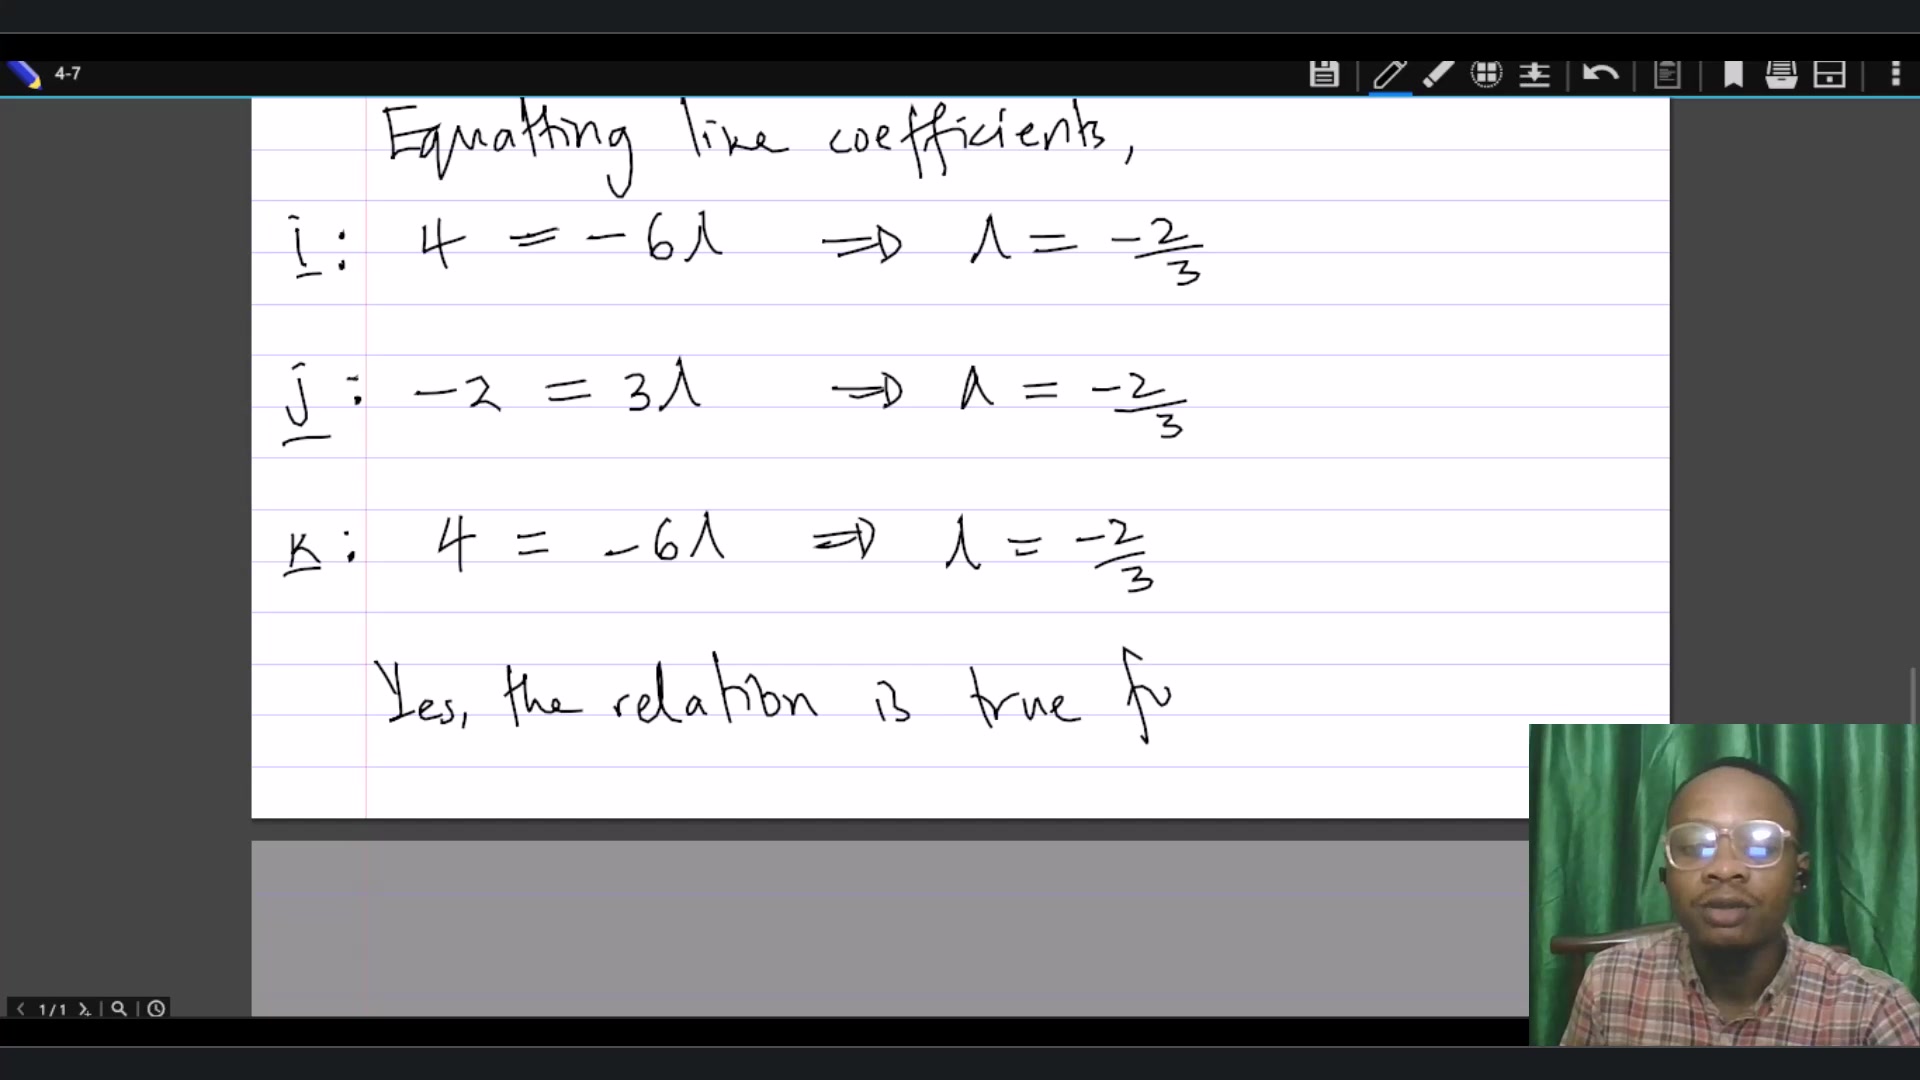 4-7
Equatting like coefficients,
i: 4 = -6λ ⇒ λ = -2/3
j: -2 = 3λ ⇒ λ = -2/3
k: 4 = -6λ ⇒ λ = -2/3
Yes, the relation is true fo
1/1